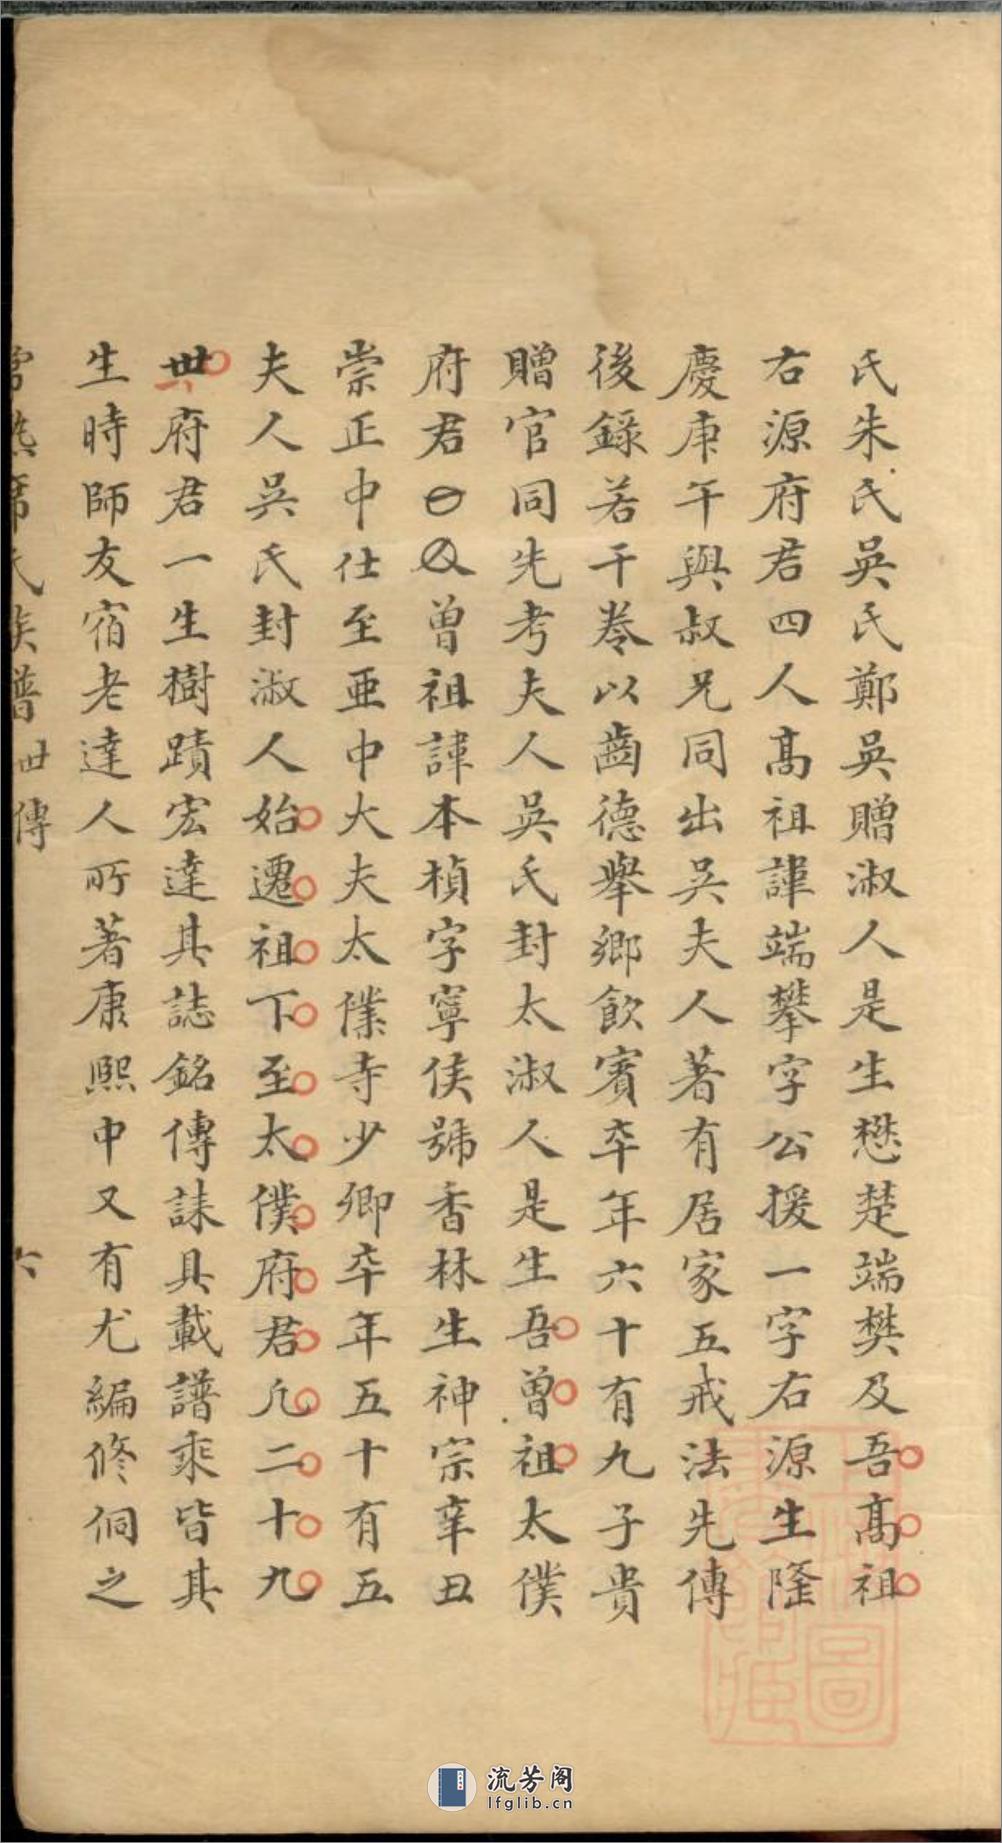 氏朱氏吳氏鄭吳贈淑人是生懋楚端樊及吾高祖
右源府君四人高祖諱端攀字公援一字右源生隆
慶庚午與叔兄同出吳夫人著有居家五戒法先傳
後錄若干卷以齒德舉鄉飲賓卒年六十有九子貴
贈官同先考夫人吳氏封太淑人是生吾曾祖太僕
府君曾祖諱本楨字寧侯號香林生神宗辛丑
崇正中仕至亞中大夫太僕寺少卿卒年五十有五
夫人吳氏封淑人始遷祖下至太僕府君凡二十九
世府君一生樹蹟宏達其誌銘傳誄具載譜乘皆其
生時師友宿老達人所著康熙中又有尤編修侗之
常熟席氏族譜 世傳 六
流芳阁
lfglib.cn